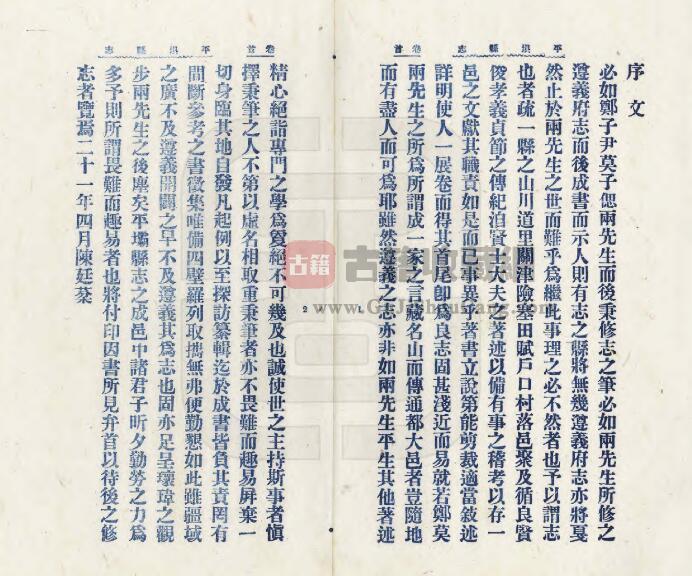 平垻縣志
卷首
序文
必如鄭子尹莫子偲兩先生而後秉修志之筆必如兩先生所修之
遵義府志而後成書而示人則有志之縣將無幾遵義府志亦將戞
然止於兩先生之世而難乎爲繼此事理之必不然者也予以謂志
也者疏一縣之山川道里關津險塞田賦戶口村落邑聚及循良賢
俊孝義貞節之傳紀洎賢士大夫之著述以備有事之稽考以存一
邑之文獻其職責如是而已事異乎著書立說第能剪裁適當敘述
詳明使人一展卷而得其首尾卽爲良志固甚淺近而易就若鄭莫
兩先生之所爲所謂成一家之言藏名山而傳通都大邑者豈隨地
而有盡人而可爲耶雖然遵義之志亦非如兩先生平生其他著述
1
平垻縣志
卷首
2
精心絕詣專門之學爲敻絕不可幾及也誠使世之主持斯事者慎
擇秉筆之人不第以虛名相取重秉筆者亦不畏難而趣易屏棄一
切身臨其地自發凡起例以至探訪纂輯迄於成書皆負其責罔有
間斷參考之書徵集唯備四壁羅列取攜無弗便勤懇如此雖疆域
之廣不及遵義開闢之早不及遵義其爲志也固亦足呈瓌瑋之觀
步兩先生之後塵矣平壩縣志之成邑中諸君子昕夕勤勞之力爲
多予則所謂畏難而趣易者也將付印因書所見弁首以待後之修
志者覽焉二十一年四月陳廷棻
古籍
古籍收藏網